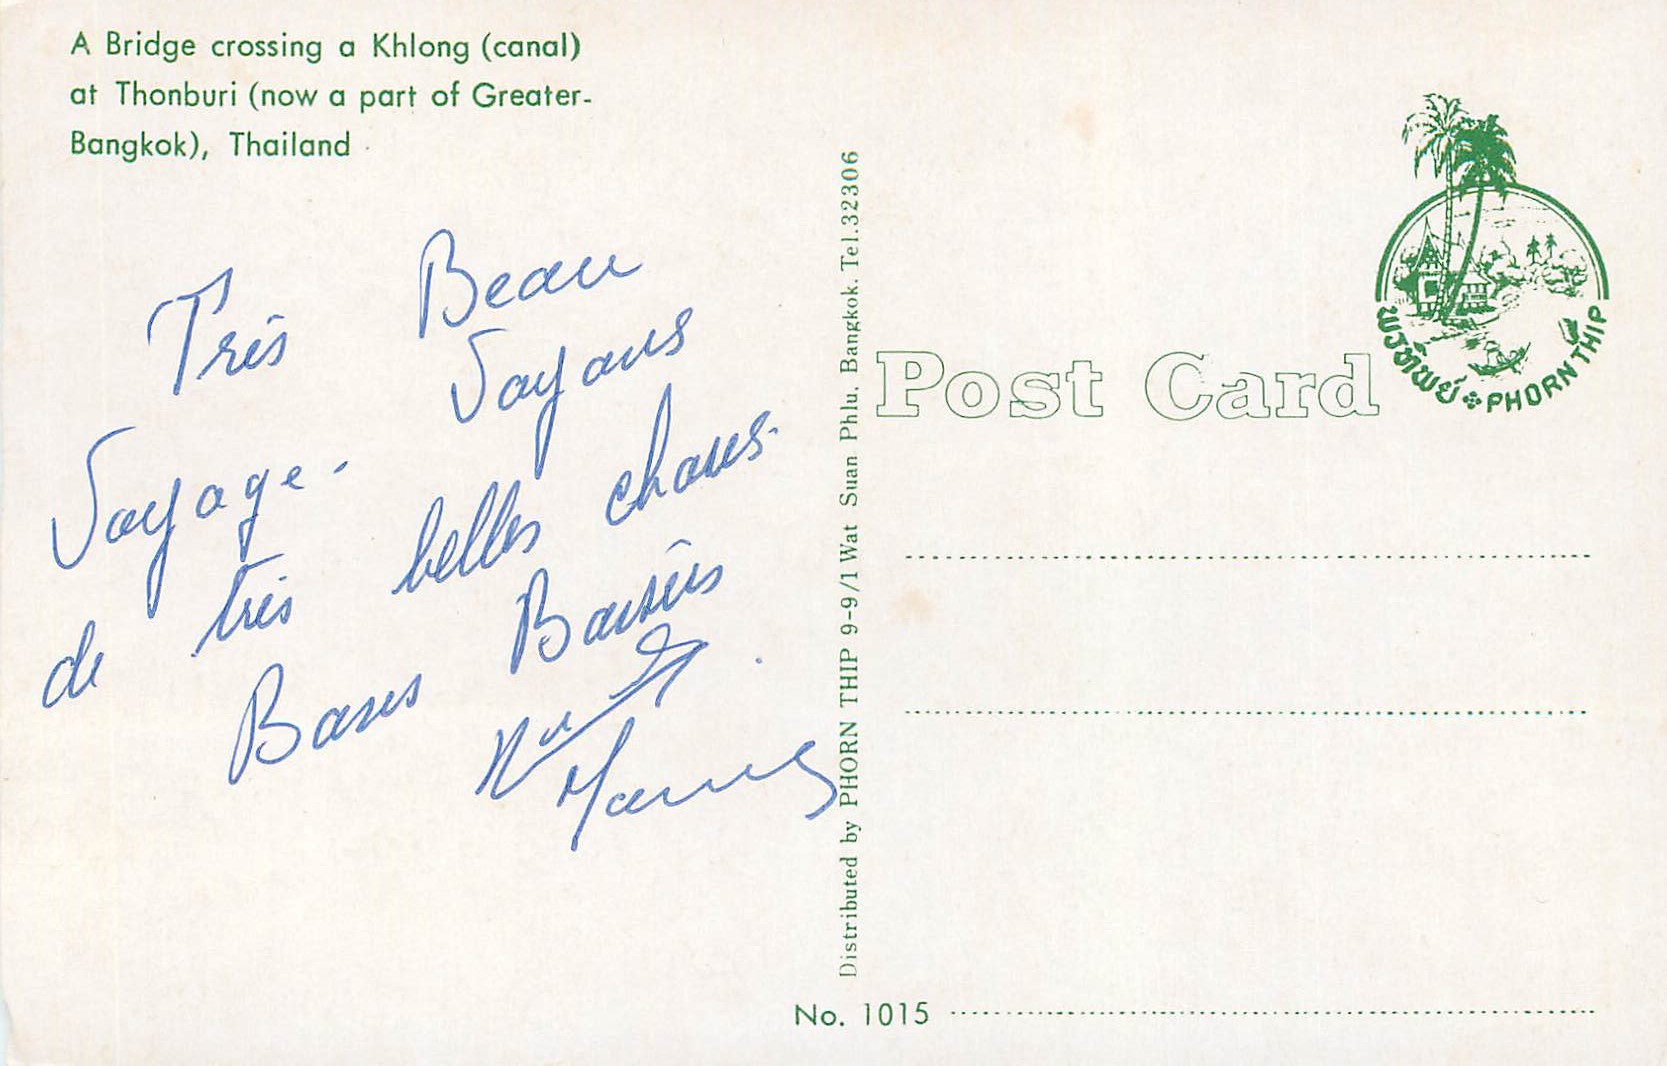 A Bridge crossing a Khlong (canal)
at Thonburi (now a part of Greater-
Bangkok), Thailand
Très Beau
Voyage - Voyons
de très belles choses.
Bons Baisers
Distributed by PHORN THIP 9-9/1 Wat Suan Phlu, Bangkok. Tel.32306
Post Card
พรทิพย์ PHORN THIP
No. 1015